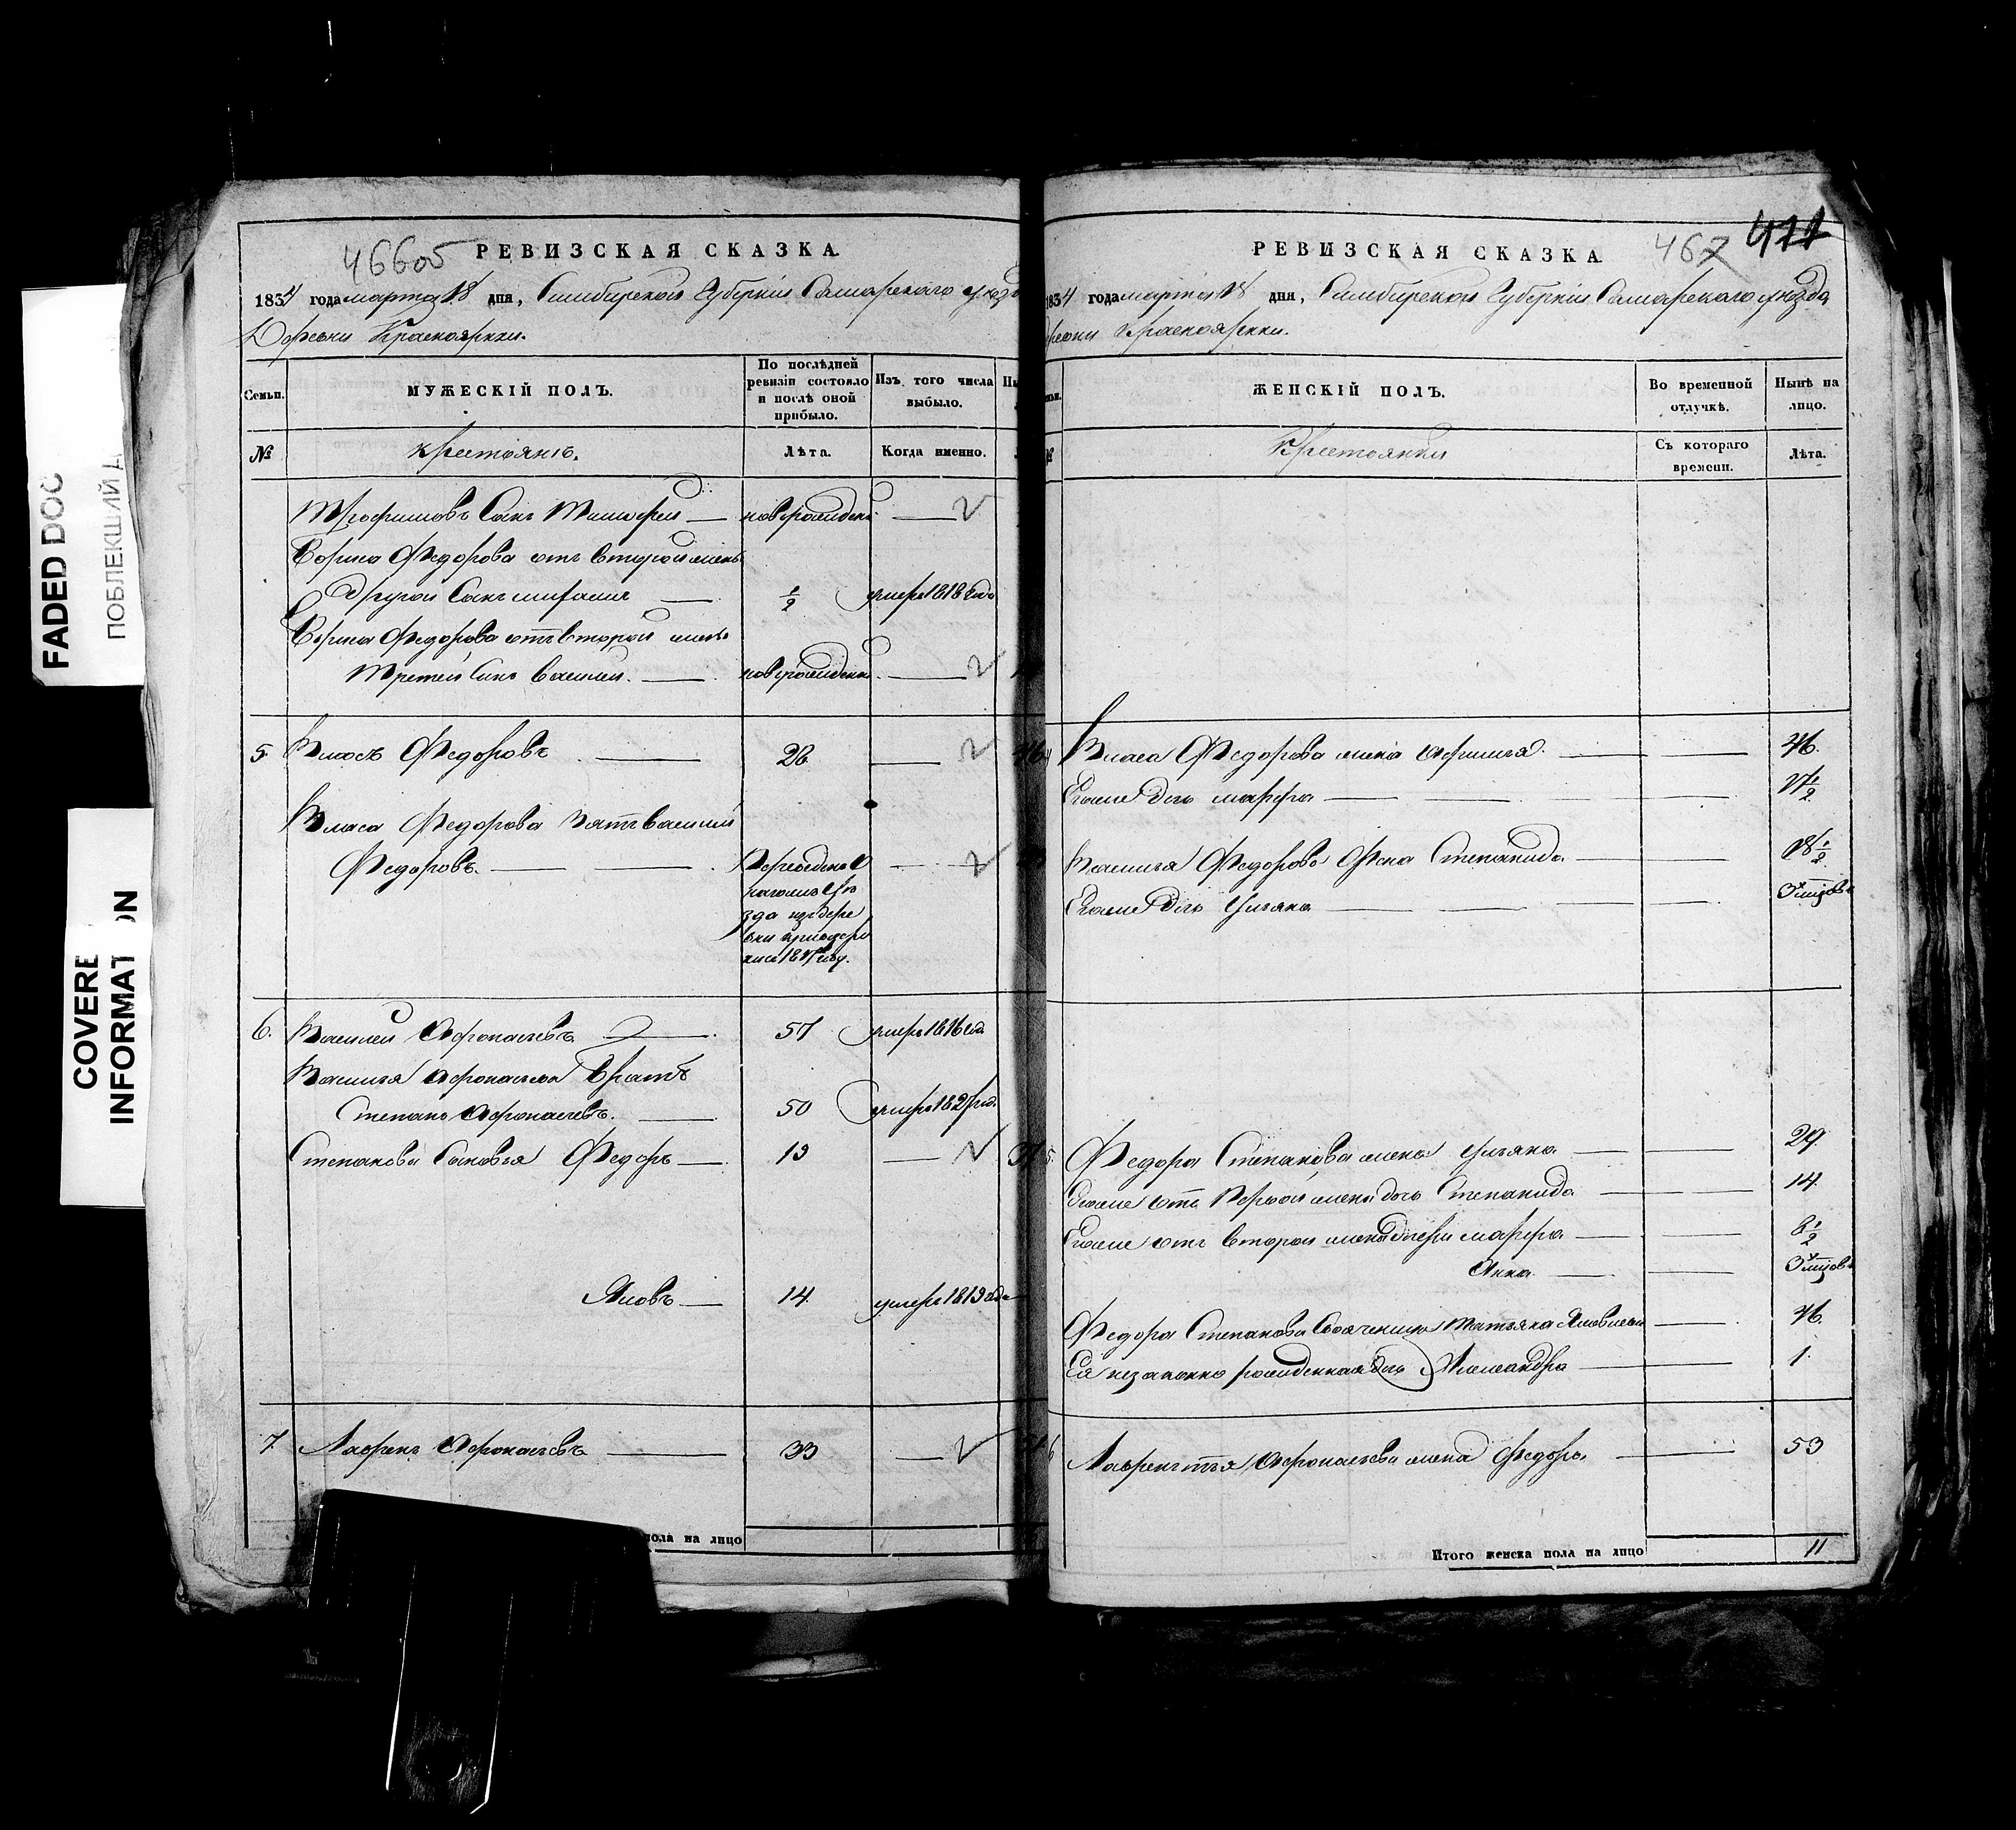 FADED DOC
ПОБЛЕКШИЙ Д
COVERE
INFORMAT ON
466об
РЕВИЗСКАЯ СКАЗКА
1834 года марта 18 дня, Симбирской Губернiи Самарского уезд
Деревни Красноярки.
Семьи.
МУЖЕСКІЙ ПОЛЪ.
По послѣдней ревизіи состояло и послѣ оной прибыло.
Изъ того числа выбыло.
Ны
№
крестьянъ.
Лѣта.
Когда именно.
Трофимовъ Сынъ Тимофей — новорожденъ —
Бориса Федорова отъ второй жены
Другой Сынъ — 1/2 умеръ 1818 года
Бориса Федорова отъ второй жены
Третей Сынъ Василей. — новорожденъ —
5 Власъ Федоровъ — 26 — 46
Власа Федорова Зять Василей
Федоровъ. — Переведенъ
из дере
6. Василей Афонасьевъ — 57 умеръ 1816 года
Василья Афонасьева Братъ
Степанъ Афонасьевъ. — 50 умеръ
Степана Сыновья Федоръ — 19 —
Яковъ — 14 умеръ 1819 года
7. Лаврен Афонасьевъ — 33 —
пола на лицо
РЕВИЗСКАЯ СКАЗКА
467 411
1834 года марта 18 дня, Симбирской Губернiи Самарского уезда
Красноярки.
ЖЕНСКІЙ ПОЛЪ.
Во временной отлучкѣ.
Нынѣ на лицо.
Крестьянки
Съ котораго времени.
Лѣта.
Власа Федорова жена Афимья — 46.
Егоже дочь марфа —
Василья Федорова Жена Степанида — 18 1/2
Егоже дочь Ульяна — 3х
Федора Степанова жена Ульяна — 29
Егоже отъ Первой жены дочь Степанида — 14
Егоже отъ второй жены дочери марфа — 8 1/2
Анна — 3х
Федора Степанова Татьяна Яковлева — 46.
Ея незаконно рожденная дочь Александра — 1.
Лаврентья Афонасьева жена Федора — 53
Итого женска пола на лицо 11